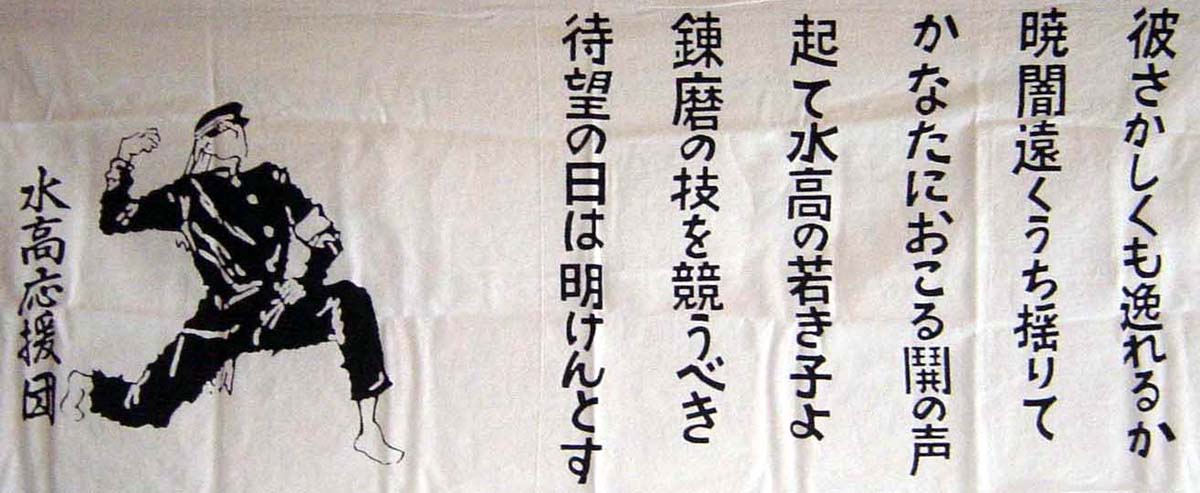 彼さかしくも逸れるか
暁闇遠くうち揺りて
かなたにおこる鬨の声
起て水高の若き子よ
錬磨の技を競うべき
待望の日は明けんとす
水高応援団